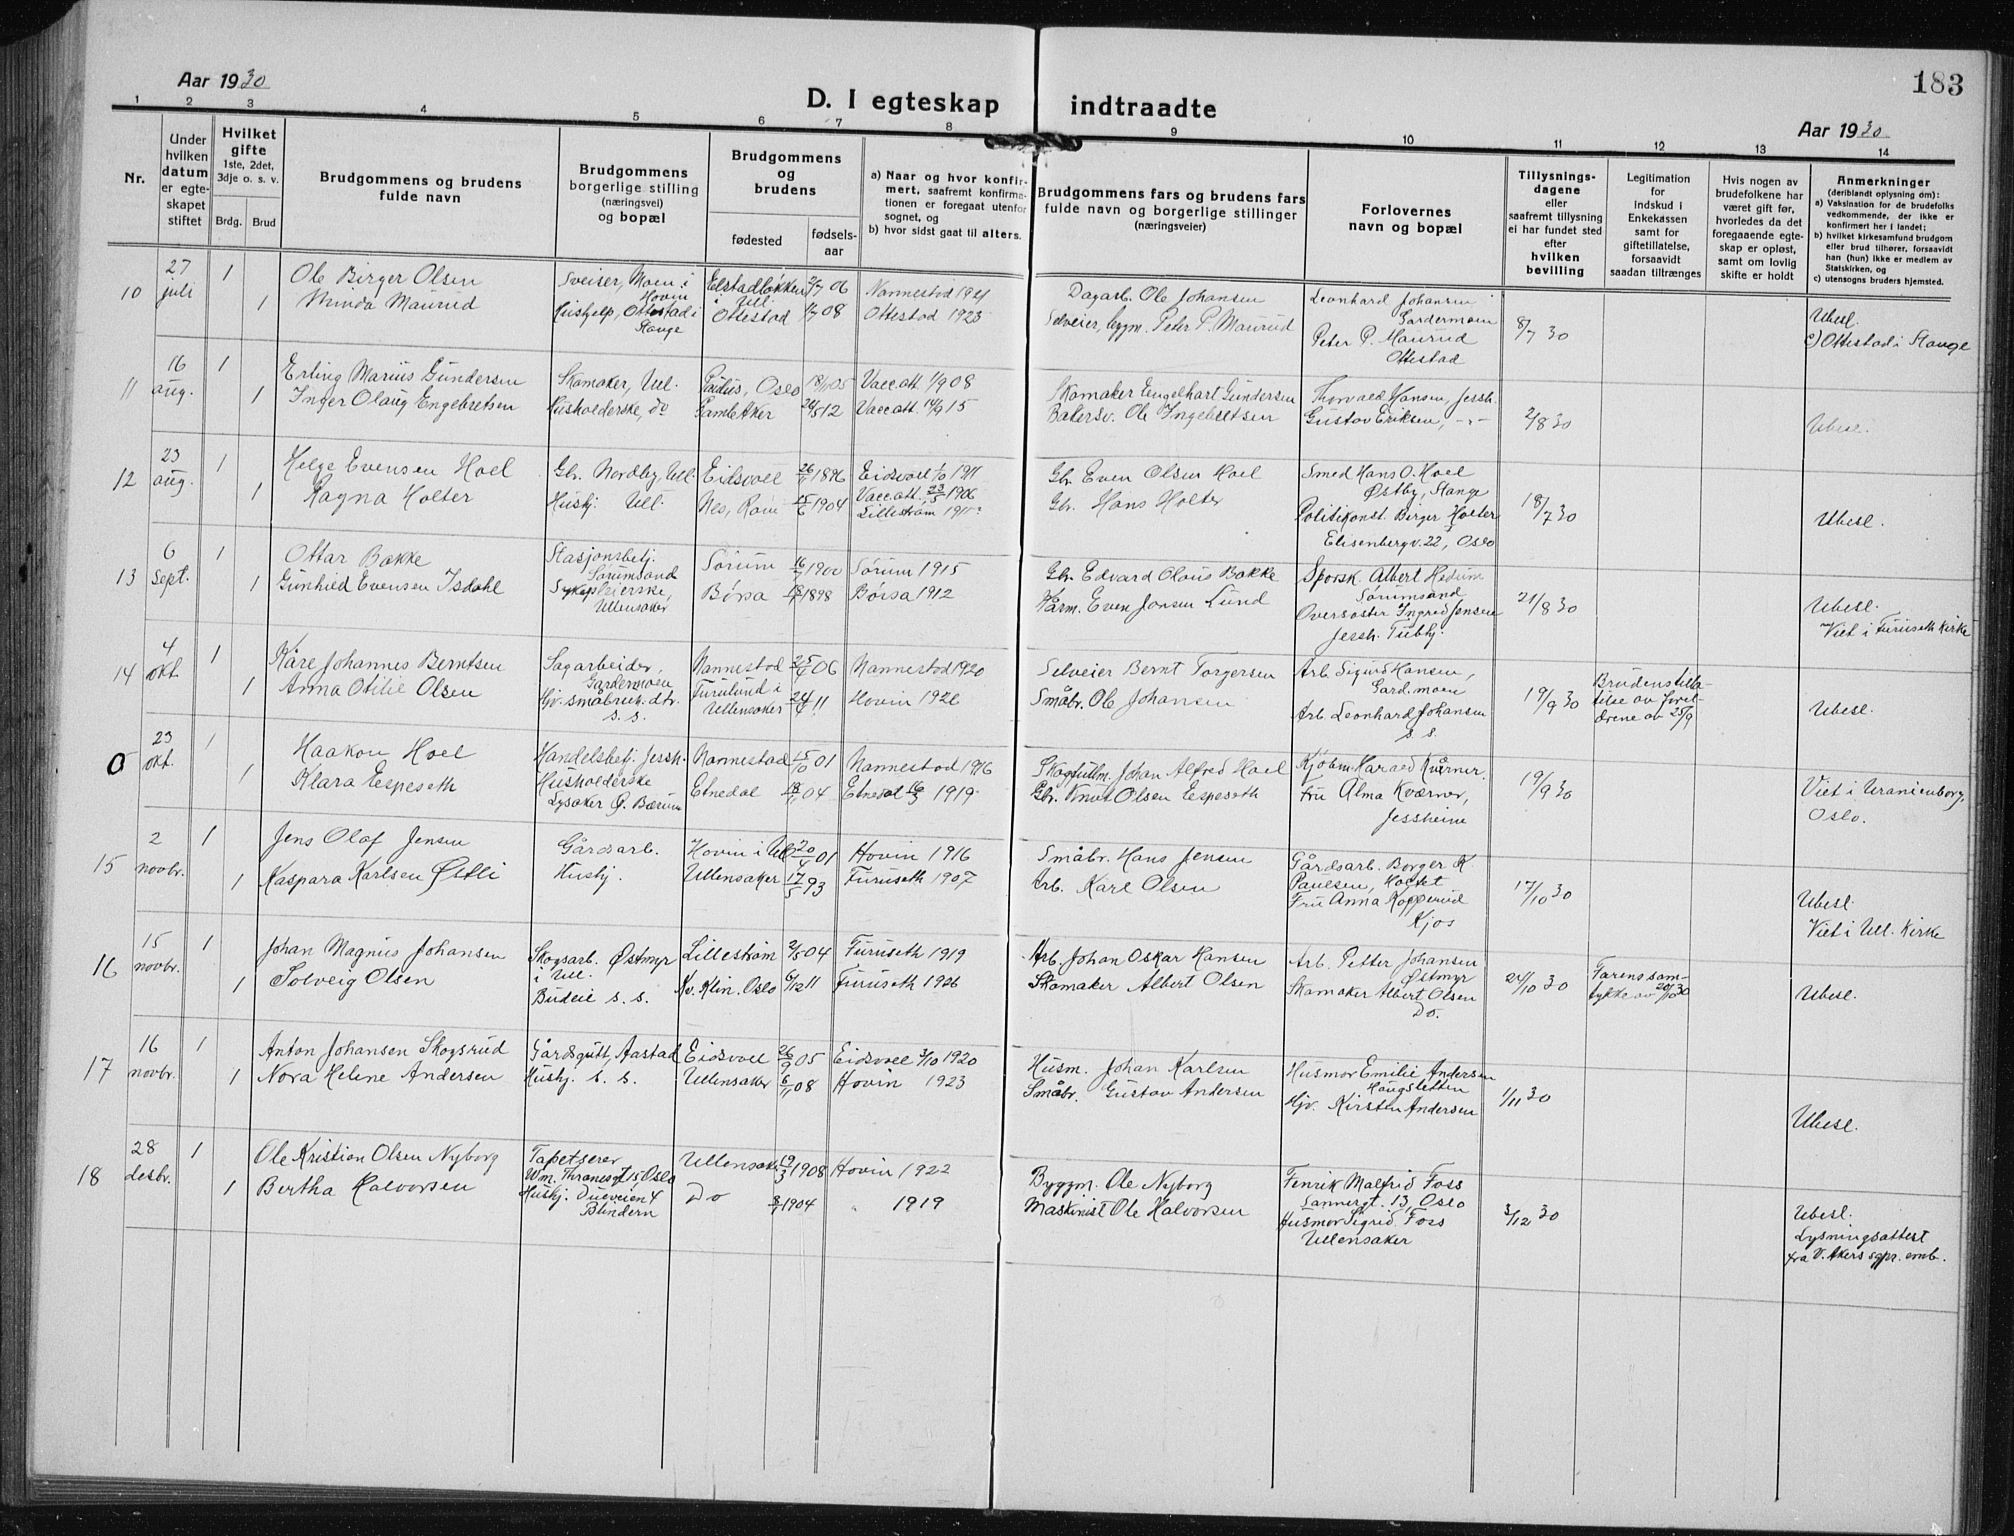 183
Aar 1930
D. I egteskap indtraadte
Aar 1930
1 2 3 4 5 6 7 8 9 10 11 12 13 14
Nr.
Under hvilken datum er egteskapet stiftet
Hvilket gifte 1ste, 2det, 3dje o. s. v.
Brdg. Brud
Brudgommens og brudens fulde navn
Brudgommens borgerlige stilling (næringsvei) og bopæl
Brudgommens og brudens
fødested fødsels-aar
a) Naar og hvor konfirmert, saafremt konfirmationen er foregaat utenfor sognet, og
b) hvor sidst gaat til alters.
Brudgommens fars og brudens fars fulde navn og borgerlige stillinger (næringsveier)
Forlovernes navn og bopæl
Tillysningsdagene eller saafremt tillysning ei har fundet sted efter hvilken bevilling
Legitimation for indskud i Enkekassen samt for giftetillatelse, forsaavidt saadan tiltrænges
Hvis nogen av brudefolkene har været gift før, hvorledes da det foregaaende egteskap er opløst, samt om lovlig skifte er holdt
Anmerkninger (deriblandt oplysning om):
a) Vaksination for de brudefolks vedkommende, der ikke er konfirmert her i landet;
b) hvilket kirkesamfund brudgom eller brud tilhører, forsaavidt han (hun) ikke er medlem av Statskirken, og
c) utensogns bruders hjemsted.
10 27 juli 1 Ole Birger Olsen Sveiser, Moen i Hovin Elstadløkken i Ull. 2/7 06 Nannestod 1921 Dagarb. Ole Johansen Leonhard Johansen Gardermoen 8/7 30 Ubesl.
1 Minda Maurud Hushjelp, Ottestad i Stange Ottestad 1/7 08 Ottestod 1923 Selveier, bygm. Peter P. Maurud Peter P. Maurud Ottestad c) Ottestad i Stange
11 16 aug. 1 Erling Marius Gundersen Skomaker, Ull. Paulus, Oslo 18/1 05 Vacc att 1/9 08 Skomaker Engelhart Gundersen Thorvald Hansen, Jessh. 2/8 30 Ubesl.
1 Inger Olaug Engebretsen Husholderske, do Gamle Aker 24/5 12 Vacc att. 14/9 15 Bakersv. Ole Ingebretsen Gustav Eriksen, -"-
12 23 aug. 1 Helge Evensen Hoel Gbr. Nordby, Ull. Eidsvoll 26/1 1896 Eidsvoll 1/10 1911 Gbr. Even Olsen Hoel Smed Hans O. Hoel Østby, Stange 18/7 30 Ubesl.
1 Ragna Holter Hushj. Ull. Nes, Rom. 15/6 1904 Vacc att. 23/5 1906 Lillestrøm Gbr. Hans Holter Politikonst. Birger Holter Elisenbergv. 22, Oslo
13 6 sept. 1 Ottar Bakke Stasjonsbetj. Sørumsand Sørum 16/7 1900 Sørum 1915 Gbr. Edvard Olaus Bakke Sporsk. Albert Hedum Sørumsand 21/8 30 Ubesl.
1 Gunhild Evensen Isdahl Sykepleierske, Ullensaker Børsa 1898 Børsa 1912 Even Jonsen Lund Oversøster Ingrid Jensen Jessh. Tubhj. Viet i Furuseth Kirke
14 4 okt. 1 Kåre Johannes Berntsen Sagarbeider, Gardermoen Nannestod 25/4 06 Nannestod 1920 Selveier Bernt Torgersen Arb. Sigurd Hansen, Gard.moen 19/9 30 Brudens tillatelse av foreldrene av 25/9 Ubesl.
1 Anna Otilie Olsen Hjv. småbruk. dtr. s. s. Furulund i Ullensaker 24/4 11 Hovin 1926 Småbr. Ole Johansen Arb. Leonhard Johansen s. s.
0 23 okt. 1 Haakon Hoel Handelsbetj. Jessh. Nannestad 15/10 01 Nannestod 1916 Skogfullm. Johan Alfred Hoel Kjøbm. Harald Kværner. 19/9 30 Viet i Uranienborg, Oslo.
1 Klara Espeseth Husholderske Lysaker Ø. Bærum Etnedal 18/11 04 Etnedal 16/3 1919 Gbr. Knut Olsen Espeseth Fru Alma Kværner, Jessheim
15 2 novbr. 1 Jens Olaf Jensen Gårdsarb. Hovin i Ull 20/4 01 Hovin 1916 Småbr. Hans Jensen Gårdsarb. Borger K. Paulsen, Holtet 17/10 30 Ubesl.
1 Kaspara Karlsen Østli Hushj. Ullensaker 17/5 93 Furuseth 1907 Arb. Karl Olsen Fru Anna Kopperud Kjos Viet i Ull. Kirke
16 15 novbr. 1 Johan Magnus Johansen Skogsarb. Østmyr i Ull. Lillestrøm 2/5 04 Furuseth 1919 Arb. Johan Oskar Hansen Arb. Petter Johansen Østmyr 24/10 30 Farens samtykke av 20/10 30 Ubesl.
1 Solveig Olsen Budeie s. s. Kv. Klin. Oslo 6/12 11 Furuseth 1926 Skomaker Albert Olsen Skomaker Albert Olsen Do.
17 16 novbr. 1 Anton Johansen Skogsrud Gårdsgutt, Aastad Eidsvoll 26/9 05 Eidsvoll 3/10 1920 Husm. Johan Karlsen Husmor Emilie Andersen Haugsletten 1/11 30 Ubesl.
1 Nora Helene Andersen Hushj. s. s. Ullensaker 6/11 08 Hovin 1923 Småbr. Gustav Andersen Hjv. Kirsten Andersen
18 28 desbr. 1 Ole Kristian Olsen Nyborg Tapetserer Wm. Thranesgt 15, Oslo Ullensaker 19/3 1908 Hovin 1922 Byggm. Ole Nyborg Fenrik Malfrid Foss Sannergt. 13, Oslo 3/12 30 Ubesl.
1 Bertha Halvorsen Hushj. Dueveien 4 Blindern Do 1904 " 1919 Maskinist Ole Halvorsen Husmor Sigrid Foss Ullensaker Lysningsattest fra V. Akers sgpr. emb.